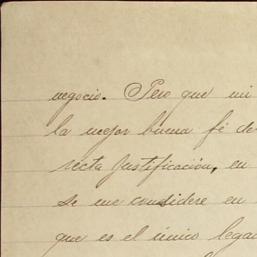 negocio. Pero que mi
la mejor buena fé de
recta justificación, en
se me considere en
que es el único lega